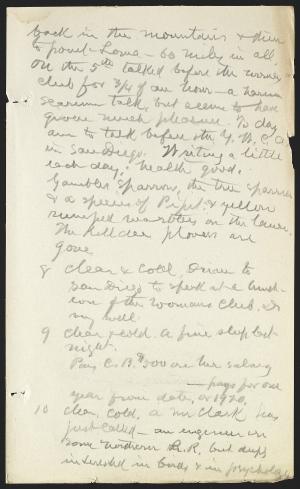 back in the mountains & then
to point-Loma - 60 miles in all.
On the 5th talked before the women's
club for 3/4 of an hour - a harum
scarum talk, but seems to have
given much pleasure. To day
am to talk before the Y. M. C. A
in San Diego. Writing a little
each day; health good.
Gambles Sparrow, the tree sparrow
& a species of Pipit, & yellow
rumped warblers on the lawn.
The killdeer plovers are
gone
8 clear & cold, Driven to
San Diego to speak at a lunch-
eon of the womans club. Do
my well
9 clear & cold. A fine sleep last
night.
Pay C. B. $500 on her salary
pays for one
year from date, or 1920.
10 clear, cold, a Mr Clark has
just called - an engineer on
some northern R.R. but deeply
interested in birds & in psychology